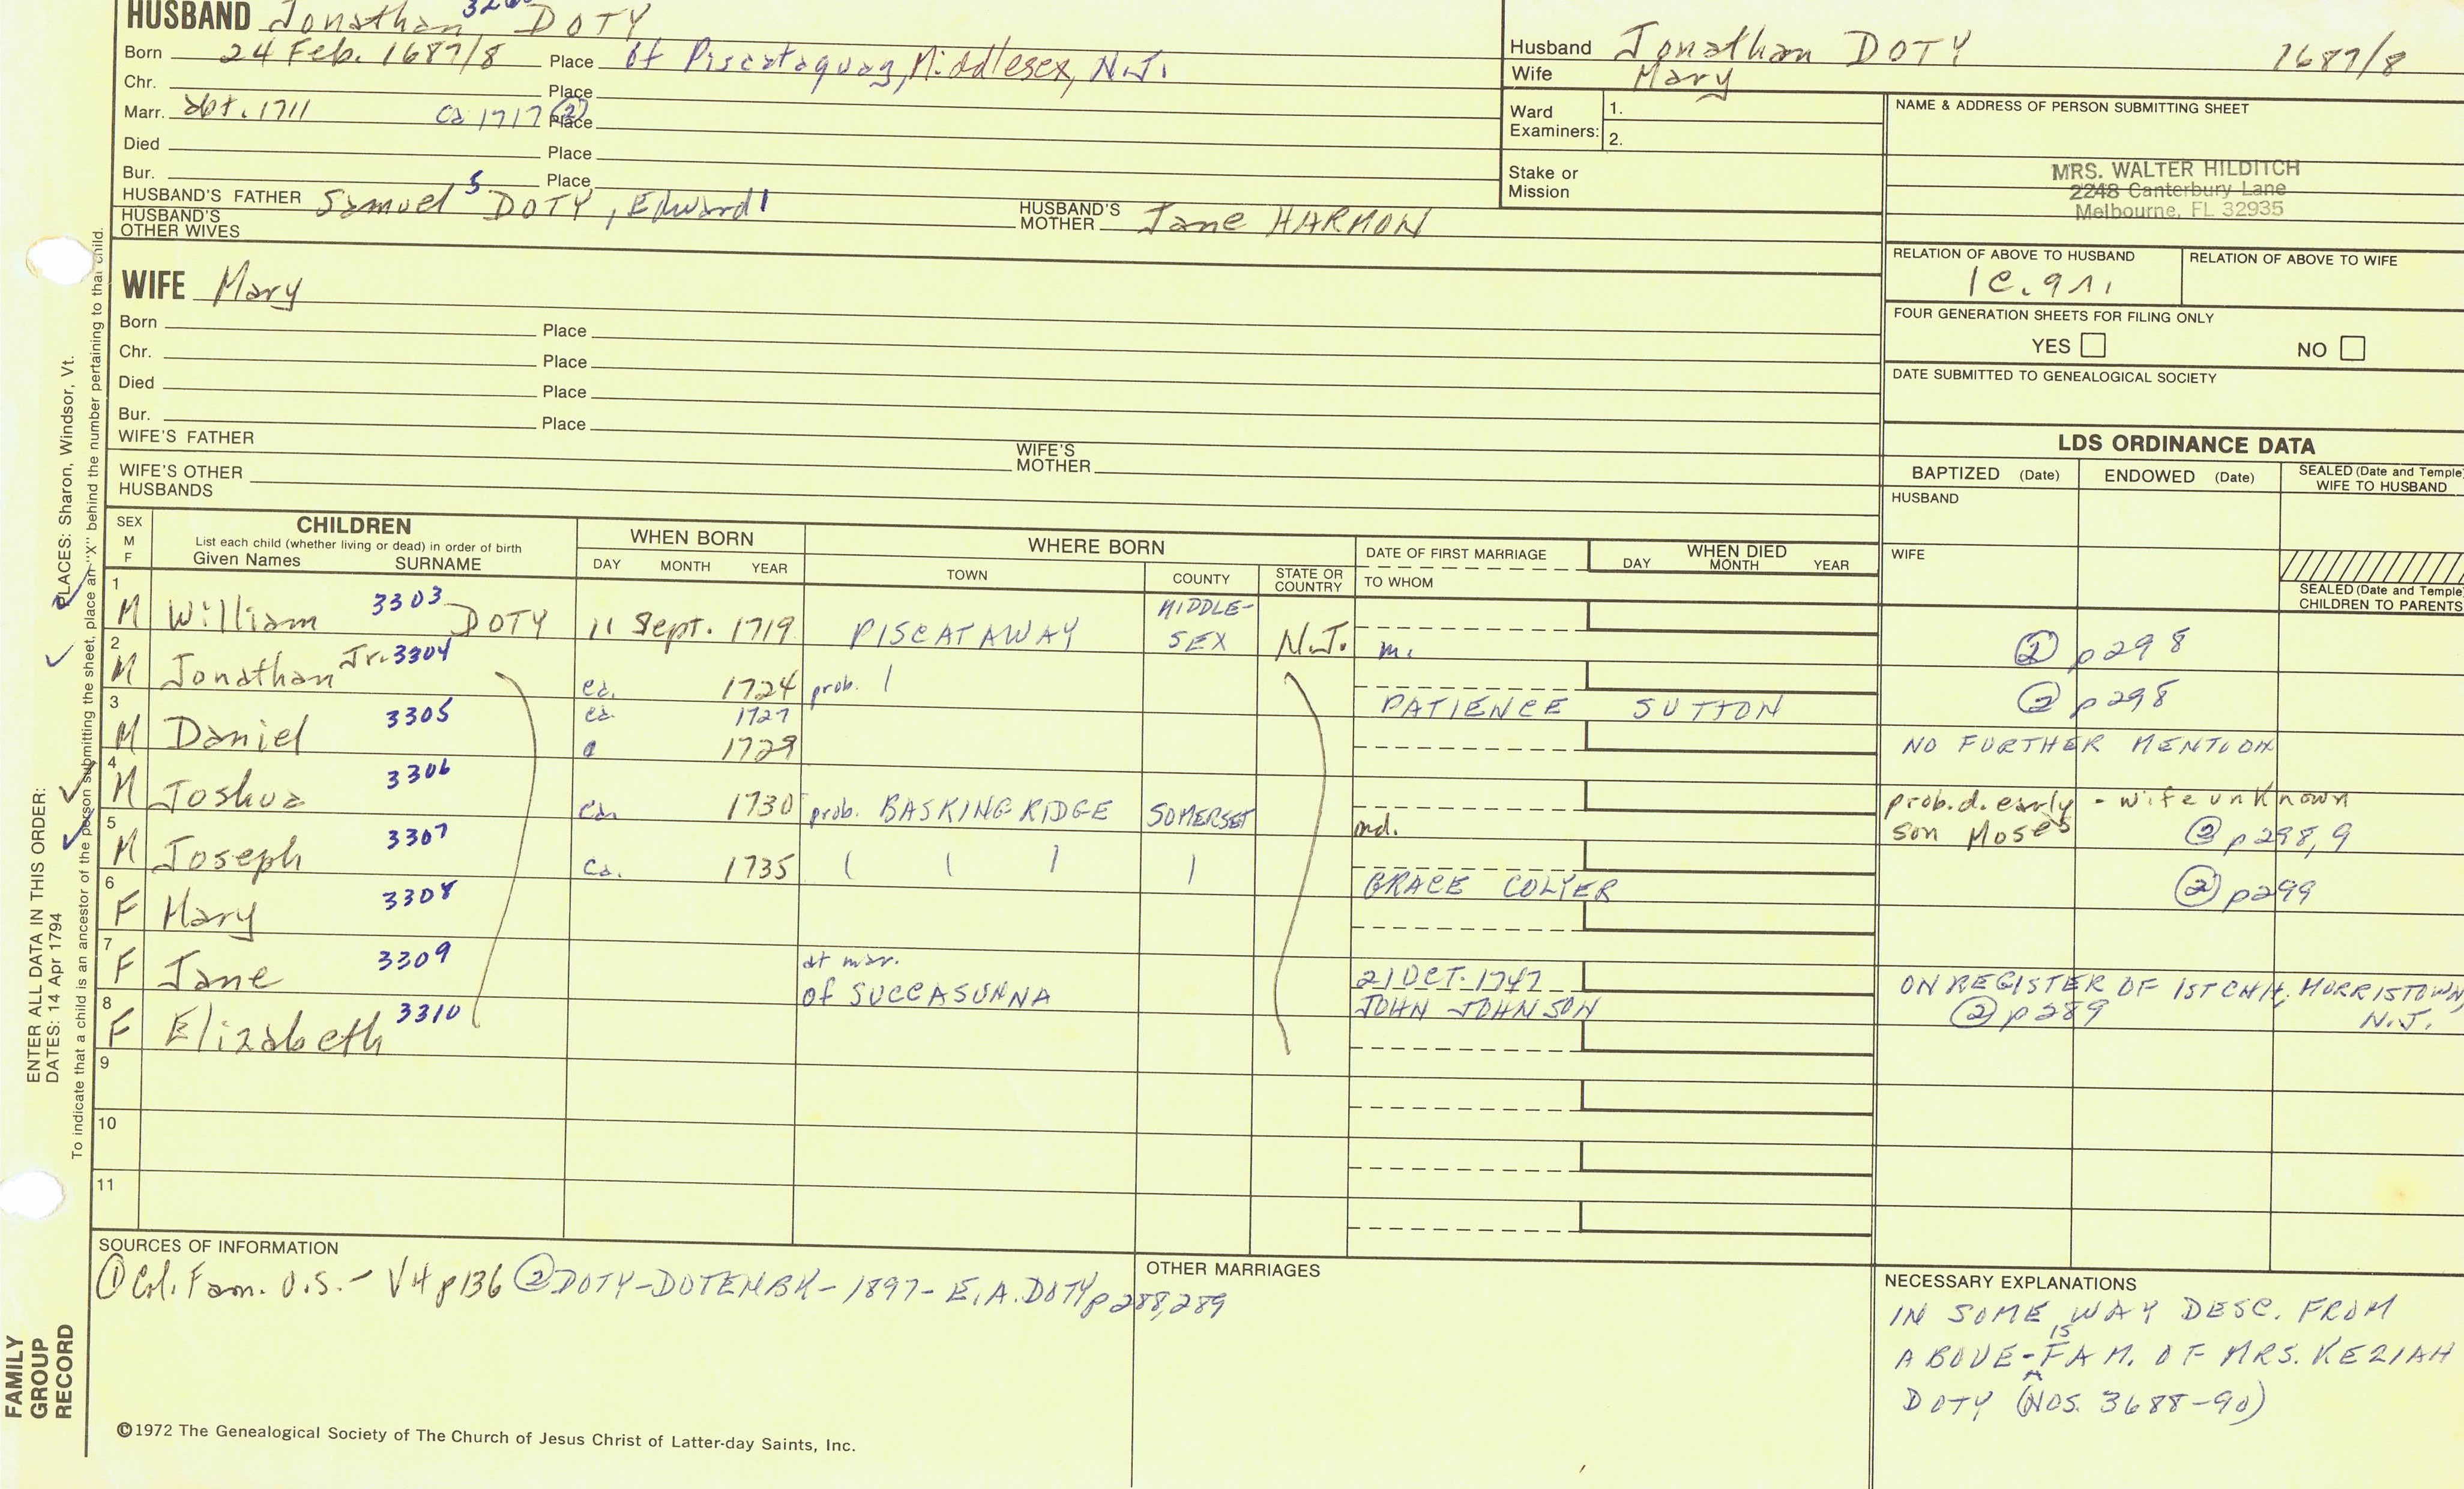 HUSBAND Jonathan DOTY
Born 24 Feb. 1687/8 Place of Piscataquay, Middlesex, N.J.
Chr. Place
Marr. abt. 1711 ca 1717 ② Place
Died Place
Bur. Place
HUSBAND'S FATHER Samuel 5 DOTY, Edward 1 HUSBAND'S MOTHER Jane HARMON
HUSBAND'S OTHER WIVES
Husband Jonathan DOTY 1687/8
Wife Mary
Ward Examiners: 1.
2.
Stake or Mission
NAME & ADDRESS OF PERSON SUBMITTING SHEET
MRS. WALTER HILDITCH
2248 Canterbury Lane
Melbourne, FL 32935
RELATION OF ABOVE TO HUSBAND RELATION OF ABOVE TO WIFE
1c.9r.
FOUR GENERATION SHEETS FOR FILING ONLY
YES NO
DATE SUBMITTED TO GENEALOGICAL SOCIETY
WIFE Mary
Born Place
Chr. Place
Died Place
Bur. Place
WIFE'S FATHER WIFE'S MOTHER
WIFE'S OTHER HUSBANDS
LDS ORDINANCE DATA
BAPTIZED (Date) ENDOWED (Date) SEALED (Date and Temple) WIFE TO HUSBAND
HUSBAND
WIFE
SEALED (Date and Temple) CHILDREN TO PARENTS
SEX M F CHILDREN WHEN BORN WHERE BORN DATE OF FIRST MARRIAGE WHEN DIED
List each child (whether living or dead) in order of birth
Given Names SURNAME DAY MONTH YEAR TOWN COUNTY STATE OR COUNTRY TO WHOM DAY MONTH YEAR
1 M William 3303 DOTY 11 Sept. 1719 PISCATAWAY MIDDLE-SEX N.J. m. ② p298
2 M Jonathan Jr. 3304 ca. 1724 prob. PATIENCE SUTTON ② p298
3 M Daniel 3305 ca. 1727 1729 NO FURTHER MENTION
4 M Joshua 3306 ca. 1730 prob. BASKING RIDGE SOMERSET md. prob. d. early - wife unknown
son Moses ② p298,9
5 M Joseph 3307 ca. 1735 GRACE COLYER ② p299
6 F Mary 3308
7 F Jane 3309 at mar. of SUCCASUNNA 21 OCT. 1747 JOHN JOHNSON ON REGISTER OF 1ST CHH, MORRISTOWN, N.J.
② p289
8 F Elizabeth 3310
9
10
11
SOURCES OF INFORMATION
① Col. Fam. U.S. - V4 p136 ② DOTY-DOTEN BK - 1897 - E.A. DOTY p288,289
OTHER MARRIAGES
NECESSARY EXPLANATIONS
IN SOME WAY DESC. FROM
ABOVE - IS FAM. OF MRS. KEZIAH
DOTY (NOS. 3688-90)
©1972 The Genealogical Society of The Church of Jesus Christ of Latter-day Saints, Inc.
FAMILY GROUP RECORD
ENTER ALL DATA IN THIS ORDER:
DATES: 14 Apr 1794 PLACES: Sharon, Windsor, Vt.
To indicate that a child is an ancestor of the person submitting the sheet, place an "X" behind the number pertaining to that child.